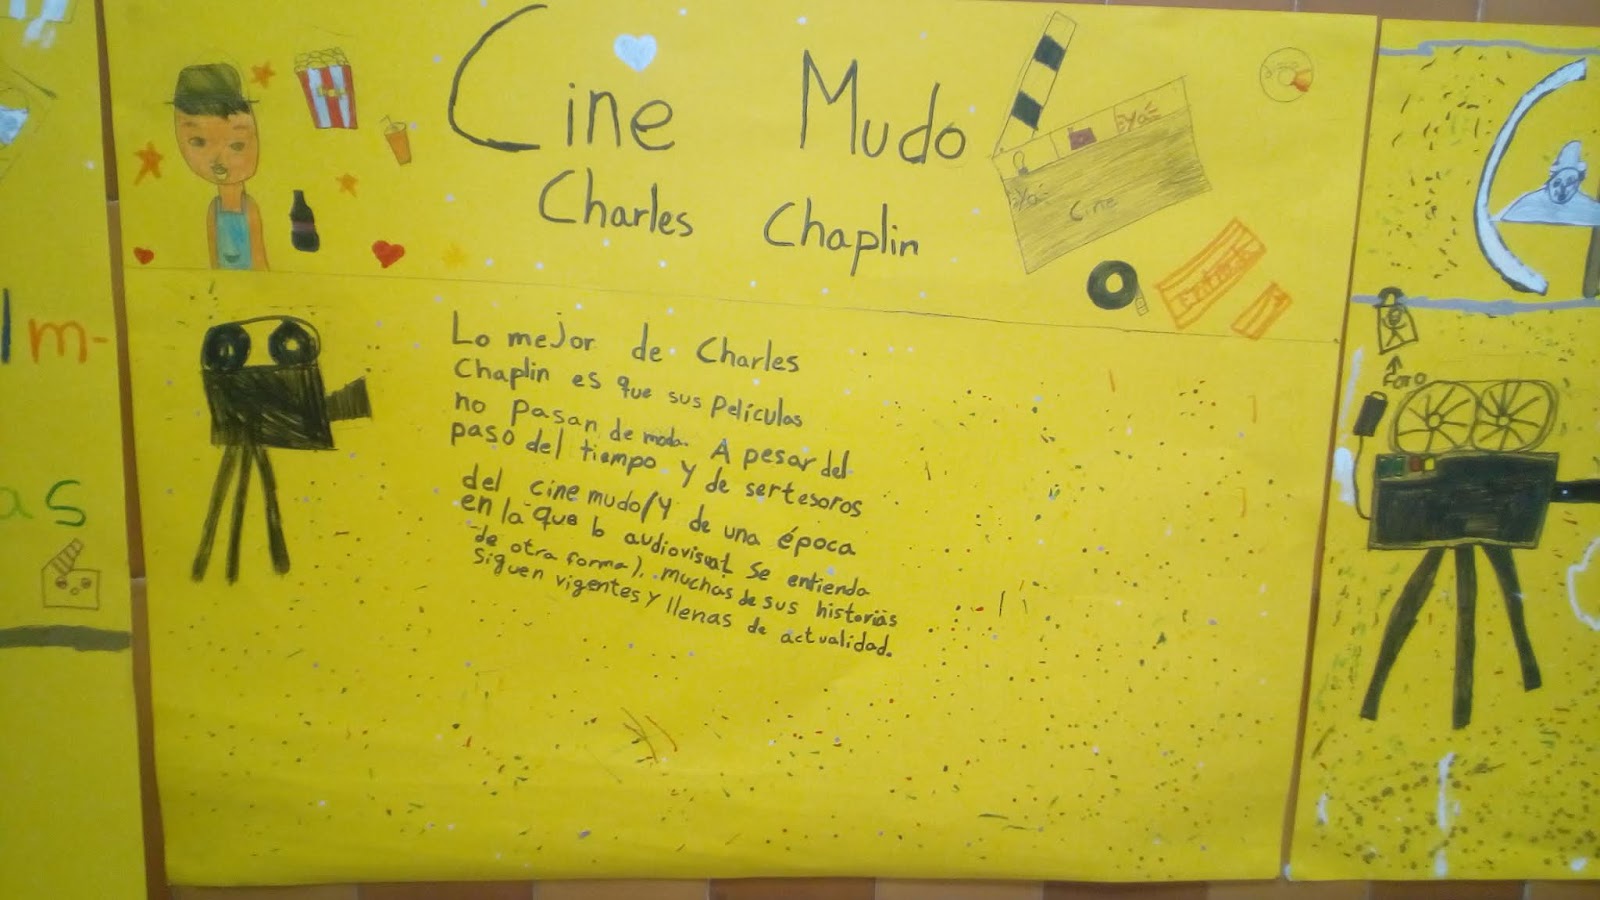 Cine Mudo
Charles Chaplin
Cine
Entrada
Lo mejor de Charles
Chaplin es que sus Películas
no pasan de moda. A pesar del
paso del tiempo y de ser tesoros
del cine mudo/y de una época
en la que lo audiovisual se entienda
de otra forma), muchas de sus historias
siguen vigentes y llenas de actualidad.
lm-
as
C
FOTO